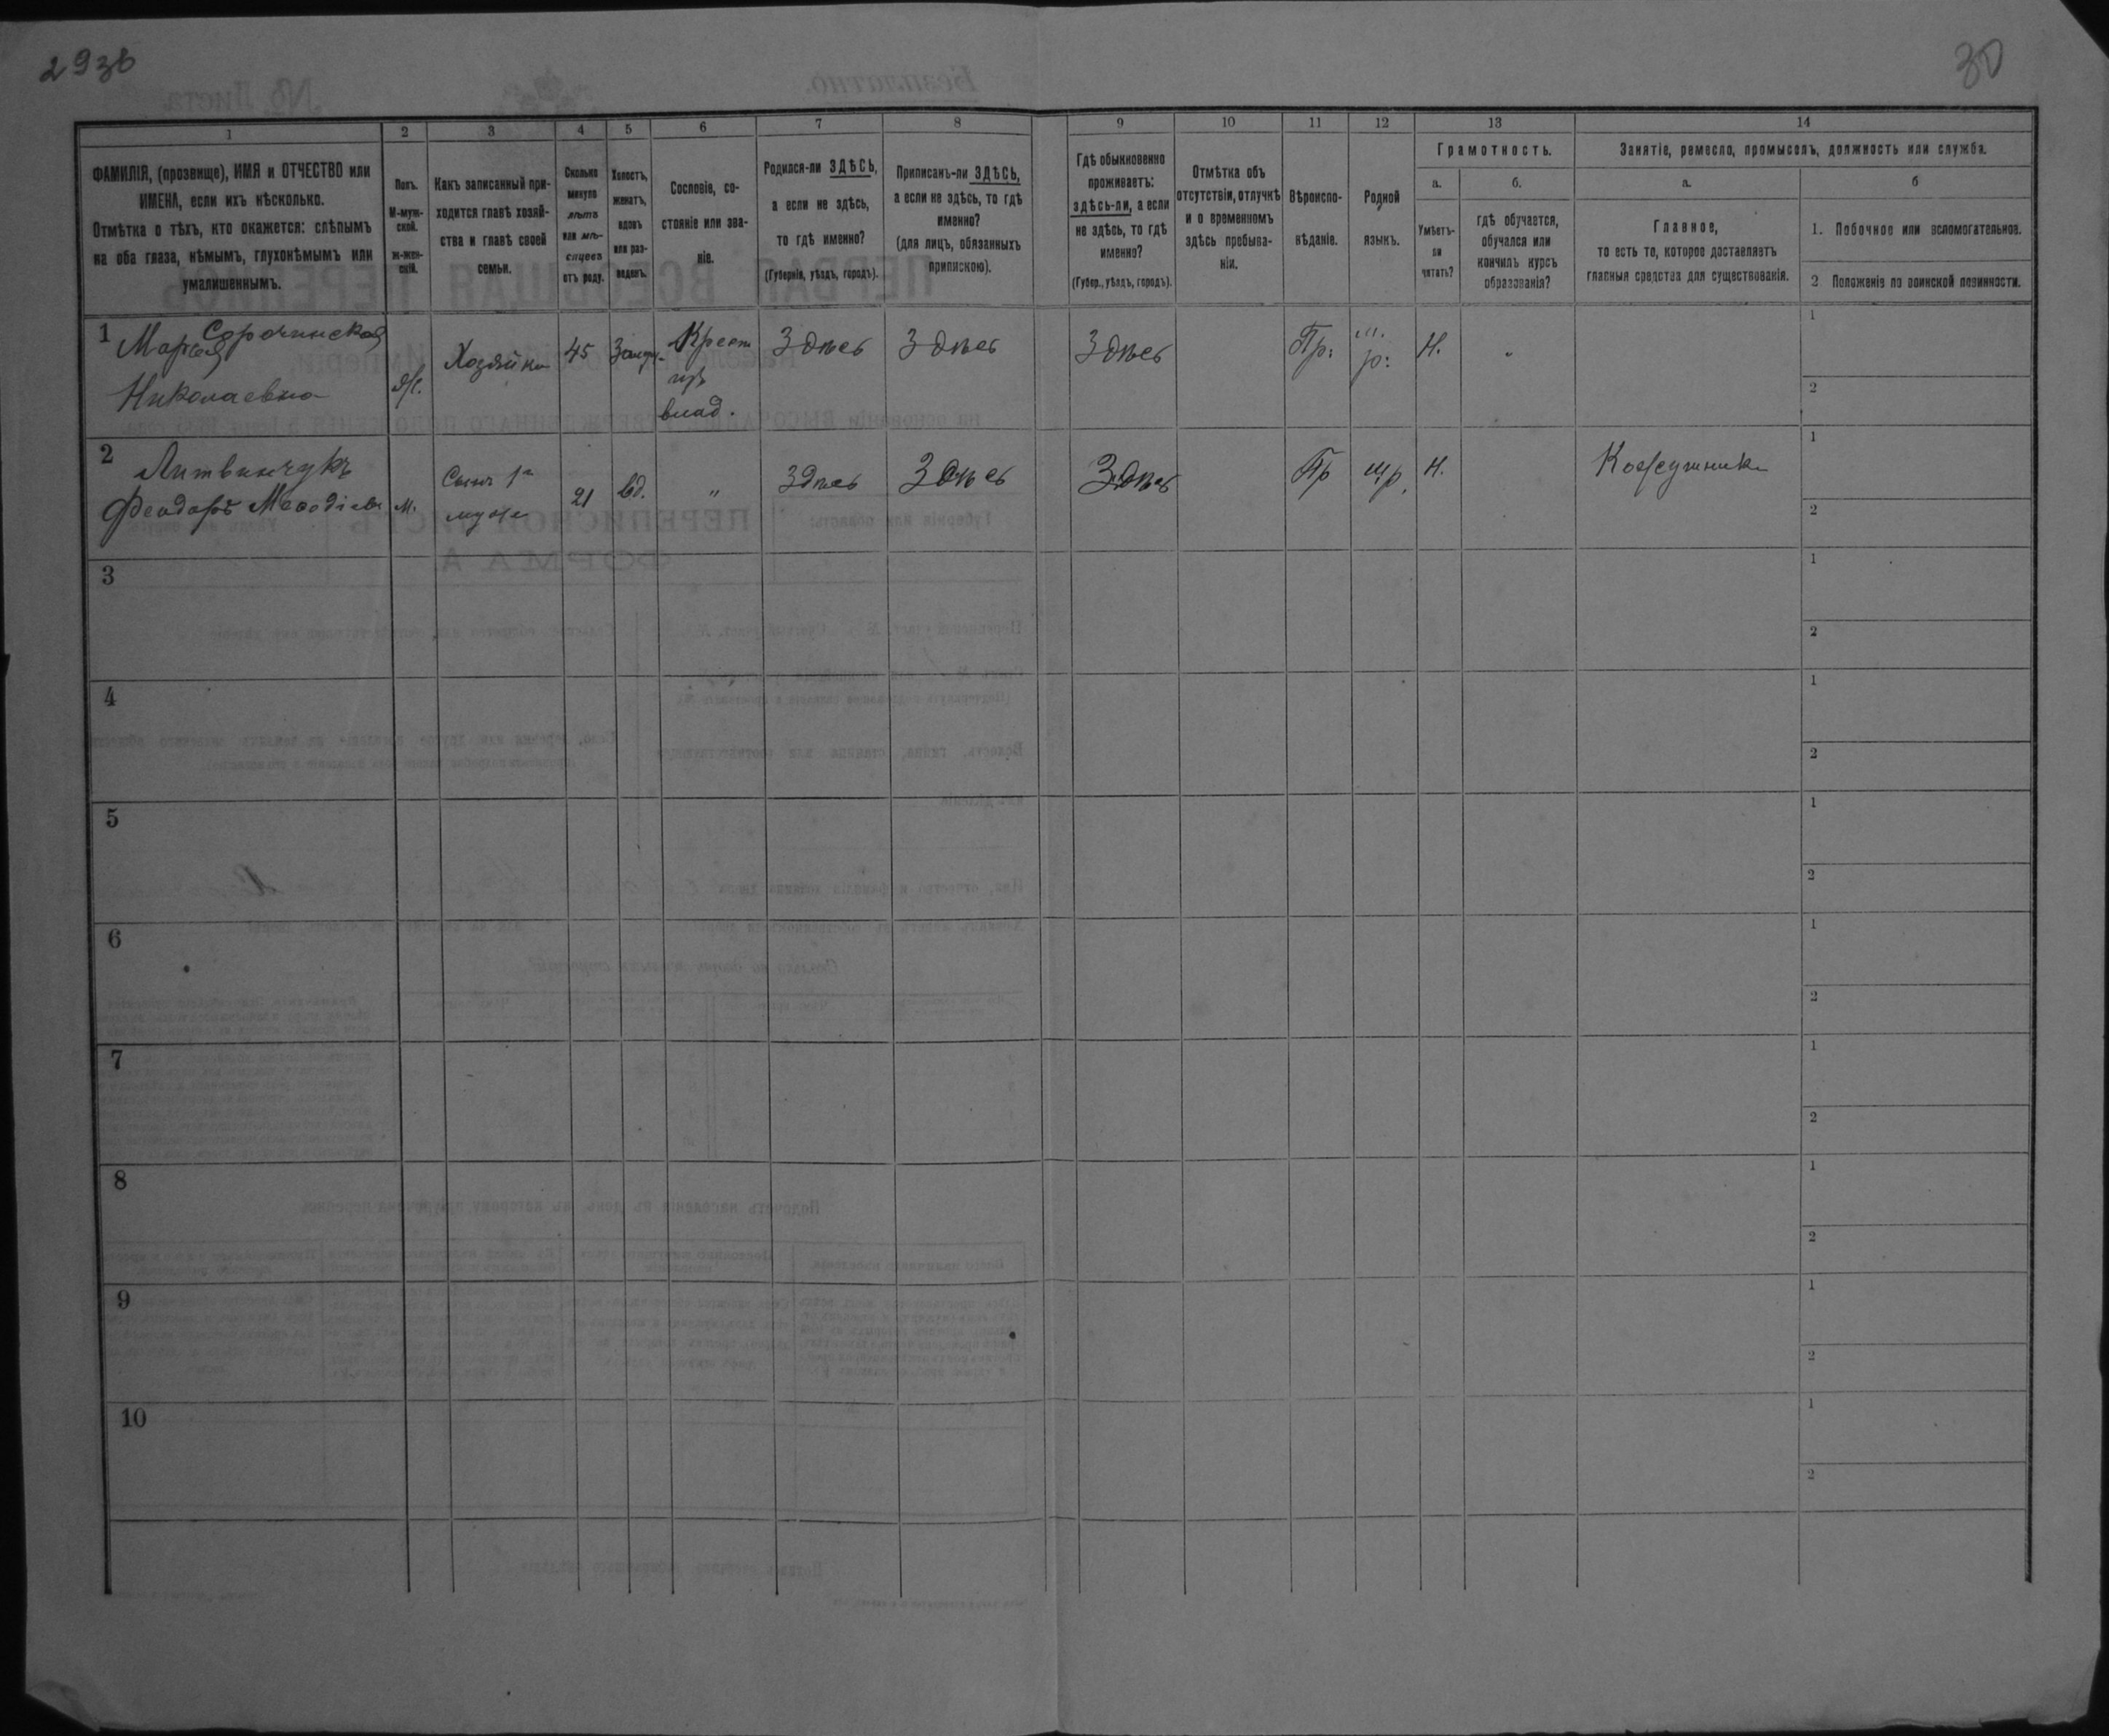 293б
30
1
2
3
4
5
6
7
8
9
10
11
12
13
14
ФАМИЛІЯ, (прозвище), ИМЯ и ОТЧЕСТВО или
ИМЕНА, если ихъ нѣсколько.
Отмѣтка о тѣхъ, кто окажется: слѣпымъ
на оба глаза, нѣмымъ, глухонѣмымъ или
умалишеннымъ.
Полъ.
М-муж-
ской.
ж-жен-
скій.
Какъ записанный при-
ходится главѣ хозяй-
ства и главѣ своей
семьи.
Сколько
минуло
лѣтъ
или мѣ-
сяцевъ
отъ роду.
Холостъ,
женатъ,
вдовъ
или раз-
веденъ.
Сословіе, со-
стояніе или зва-
ніе.
Родился-ли ЗДѢСЬ,
а если не здѣсь,
то гдѣ именно?
(Губернія, уѣздъ, городъ).
Приписанъ-ли ЗДѢСЬ,
а если не здѣсь, то гдѣ
именно?
(для лицъ, обязанныхъ
припискою).
Гдѣ обыкновенно
проживаетъ:
здѣсь-ли, а если
не здѣсь, то гдѣ
именно?
(Губер., уѣздъ, городъ).
Отмѣтка объ
отсутствіи, отлучкѣ
и о временномъ
здѣсь пребыва-
ніи.
Вѣроиспо-
вѣданіе.
Родной
языкъ.
Грамотность.
а.
Умѣетъ-
ли
читать?
б.
гдѣ обучается,
обучался или
кончилъ курсъ
образованія?
Занятіе, ремесло, промыселъ, должность или служба.
а.
Главное,
то есть то, которое доставляетъ
главныя средства для существованія.
б
1. Побочное или вспомогательное.
2 Положеніе по воинской повинности.
1
Сорочинская
Марья
Николаевна
Ж.
Хозяйка
45
Замуж.
Крест
изъ
влад.
Здѣсь
Здѣсь
Здѣсь
Пр:
м.
р:
Н.
"
1
2
2
Литвинчукъ
Феодоръ Меѳодіевъ
М.
Сынъ 1го
мужа
21
вд.
"
Здѣсь
Здѣсь
Здѣсь
Пр
мр.
Н.
Кожушникъ
1
2
3
1
2
4
1
2
5
1
2
6
1
2
7
1
2
8
1
2
9
1
2
10
1
2